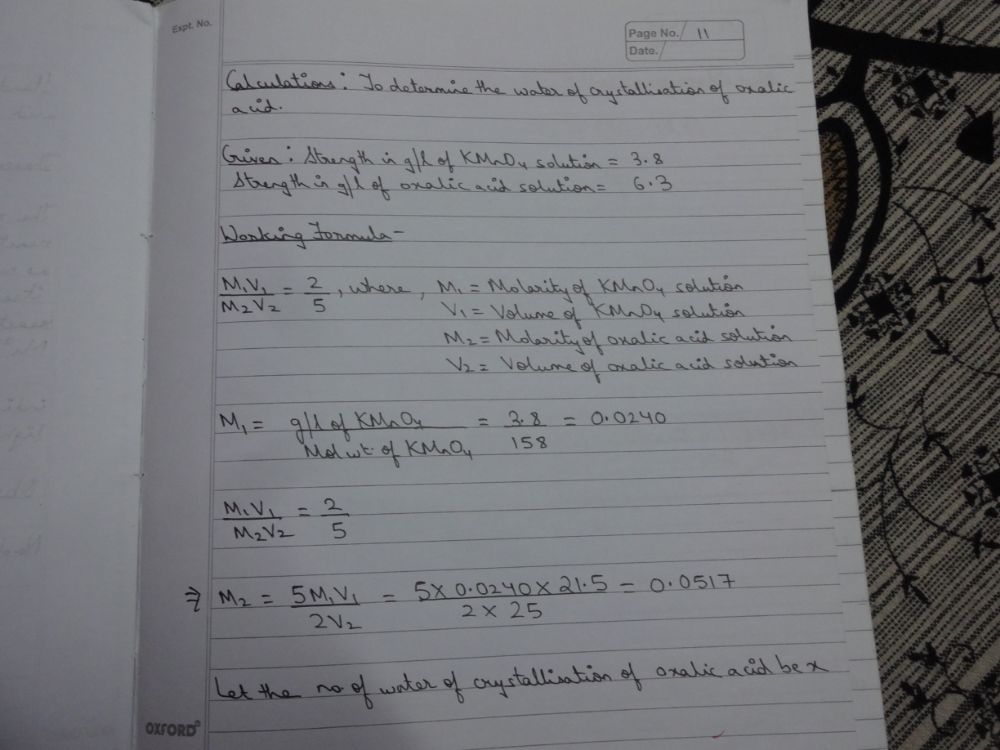 Expt. No.
Page No. 11
Date.
Calculations: To determine the water of crystallisation of oxalic
acid.
Given: Strength in g/l of KMnO4 solution = 3.8
Strength in g/l of oxalic acid solution = 6.3
Working Formula -
M1V1/M2V2 = 2/5, where, M1 = Molarity of KMnO4 solution
V1 = Volume of KMnO4 solution
M2 = Molarity of oxalic acid solution
V2 = Volume of oxalic acid solution
M1 = g/l of KMnO4/Mol wt. of KMnO4 = 3.8/158 = 0.0240
M1V1/M2V2 = 2/5
⇒ M2 = 5M1V1/2V2 = 5 X 0.0240 X 21.5/2 X 25 = 0.0517
Let the no of water of crystallisation of oxalic acid be x
OXFORD